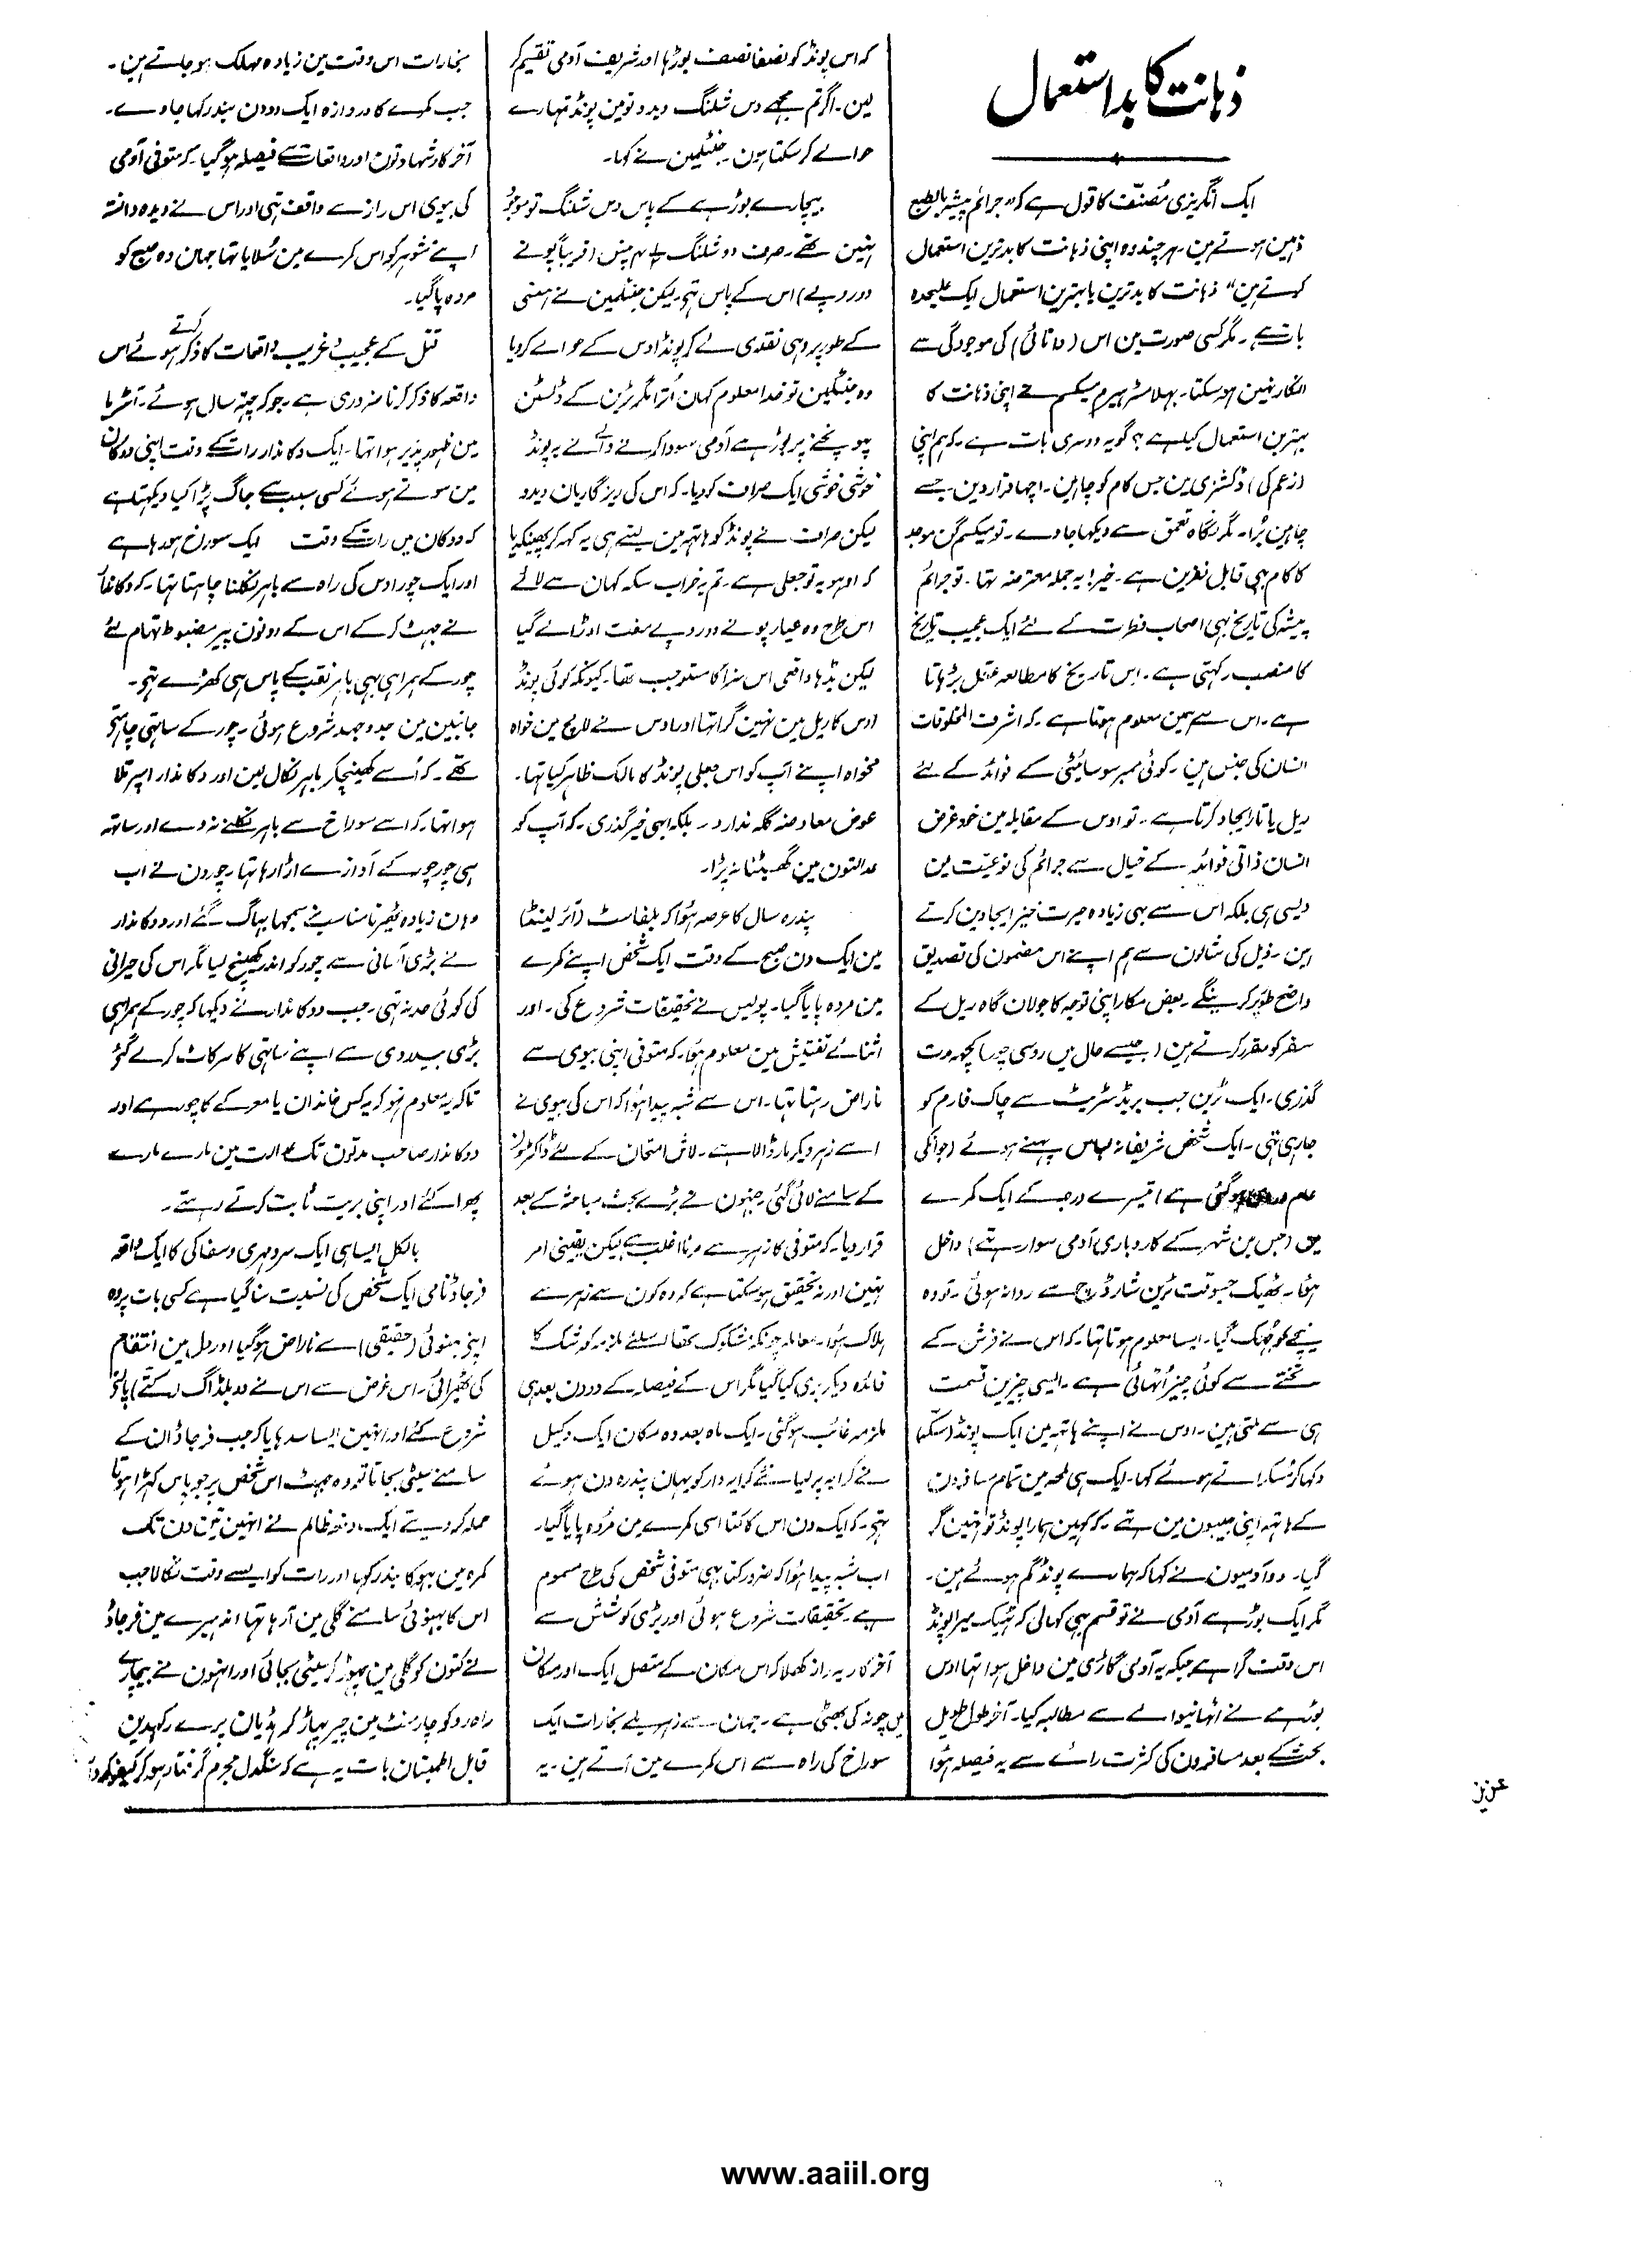 ذہانت کا بد استعمال
ایک انگریزی مُصنّف کا قول ہے کہ "جرائم پیشہ بالطبع
ذہین ہوتے ہین۔ ہر چند وہ اپنی ذہانت کا بدترین استعمال
کرتے ہین" ذہانت کا بدترین یا بہترین استعمال ایک علیحدہ
بات ہے۔ مگر کسی صورت مین اس (دانائی) کی موجودگی سے
انکار نہین ہو سکتا۔ بہلا مسٹر ہیرم میکسم نے اپنی ذہانت کا
بہترین استعمال کیا ہے؟ گو یہ دوسری بات ہے۔ کہ ہم اپنی
(زعم کی) ڈکشنری مین جس کام کو چاہین۔ اچہا قرار دین۔ جسے
چاہین بُرا۔ مگر نگاہ تعمق سے دیکہا جاوے۔ تو میکسم گن موجد
کا کام بہی قابل نفرین ہے۔ خیر! یہ جملہ معترضہ تہا۔ تو جرائم
پیشہ کی تاریخ بہی اصحاب فطرت کے لئے ایک عجیب تاریخ
کا منصب رکہتی ہے۔ اس تاریخ کا مطالعہ عقل بڑہاتا
ہے۔ اس سے ہمین معلوم ہوتا ہے۔ کہ اشرف المخلوقات
انسان کی جنس مین۔ کوئی ممبر سوسائٹی کے فوائد کے لئے
ریل یا تار ایجاد کرتا ہے۔ تو اوس کے مقابلہ مین خود غرض
انسان ذاتی فوائد کے خیال سے جرائم کی نوعیّت مین
ویسی ہی بلکہ اس سے بہی زیادہ حیرت خیز ایجادین کرتے
ہین۔ ذیل کی مثالون سے ہم اپنے اس مضمون کی تصدیق
واضح طور پر کرینگے۔ بعض مکار اپنی توجہ کا جولان گاہ ریل کے
سفر کو مقرر کرتے ہین (جیسے حال میں روسی چور) کچھ مدت
گذری۔ ایک ٹرین جب بریڈ سٹریٹ سے چاک فارم کو
جا رہی تہی۔ ایک شخص شریفانہ لباس پہنے ہوئے (جو انکی
عام ہوگئی ہے) تیسرے درجہ کے ایک کمرے
مین (جس مین شہر کے کاروباری آدمی سوار تہے) داخل
ہوا۔ ٹھیک جسوقت ٹرین شارڈچ سے روانہ ہوئی۔ تو وہ
نیچے کو جُھک گیا۔ ایسا معلوم ہوتا تہا۔ کہ اس نے فرش کے
تختے سے کوئی چیز اُٹہائی ہے۔ ایسی چیزین قسمت
ہی سے ملتی ہین۔ اوس نے اپنے ہاتہہ مین ایک پونڈ (سکّہ)
دکہا کر مُسکراتے ہوئے کہا۔ ایک ہی لمحہ مین تمام مسافرون
کے ہاتہہ اپنی جیبون مین تہے۔ کہ کہین ہمارا پونڈ تو نہین گر
گیا۔ دو آدمیون نے کہا کہ ہمارے پونڈ گم ہوئے ہین۔
مگر ایک بوڑہے آدمی نے تو قسم بہی کہا لی کہ ٹہیک میرا پونڈ
اس وقت گرا ہے جبکہ یہ آدمی گاڑی مین داخل ہوا تہا اوس
بوڑہے نے اٹہانیوالے سے مطالبہ کیا۔ آخر طول طویل
بحث کے بعد مسافرون کی کثرت رائے سے یہ فیصلہ ہوا
کہ اس پونڈ کو نصفا نصف بوڑہا اور شریف آدمی تقیم کر
لین۔ اگر تم مجہے دس شلنگ دیدو تو مین پونڈ تمہارے
حوالے کر سکتا ہون۔ جنٹلمین نے کہا۔
بیچارے بوڑہے کے پاس دس شلنگ تو موجود
نہین تھے۔ صرف دو شلنگ پنس (قریباً پونے
دو روپے) اس کے پاس تہی۔ لیکن جنٹلمین نے ہنسی
کے طور پر وہی نقدی لے کر پونڈ اوس کے حوالے کر دیا
وہ جنٹلمین تو خدا معلوم کہان اُترا مگر ٹرین کے ڈلسٹن
پہونچنے پر بوڑہے آدمی سودا کرنے والے نے یہ پونڈ
خوشی خوشی ایک صراف کو دیا۔ کہ اس کی ریزگاریان دیدو
لیکن صراف نے پونڈ کو ہاتہہ مین لیتے ہی یہ کہہ کر پھینکدیا
کہ اوہو یہ تو جعلی ہے۔ تم یہ خراب سکہ کہان سے لائے
اس طرح وہ عیار پونے دو روپے مفت اوڑا لے گیا
لیکن بڈہا واقعی اس سزا کا مستوجب تھا۔ کیونکہ کوئی پونڈ
اوس کا ریل مین نہین گرا تہا اور اوس نے لالچ مین خواہ
مخواہ اپنے آپ کو اس جعلی پونڈ کا مالک ظاہر کیا تہا۔
عوض معاوضہ گلہ ندارد۔ بلکہ ابہی خیر گذری۔ کہ آپ کو
عدالتون مین گھسیٹنا نہ پڑا۔
پندرہ سال کا عرصہ ہوا کہ بلفاسٹ (آئر لینڈ)
مین ایک دن صبح کے وقت ایک شخص اپنے کمرے
مین مردہ پایا گیا۔ پولیس نے تحقیقات شروع کی۔ اور
اثنائے تفتیش مین معلوم ہوا۔ کہ متوفی اپنی بیوی سے
ناراض رہتا تہا۔ اس سے شبہ پیدا ہوا کہ اس کی بیوی نے
اسے زہر دیکر مار ڈالا ہے۔ لاش امتحان کے لئے ڈاکٹرون
کے سامنے لائی گئی۔ جنہون نے بڑے بحث مباحثہ کے بعد
قرار دیا۔ کہ متوفی کا زہر سے مرنا اغلب ہے لیکن یقینی امر
نہین اور نہ تحقیق ہو سکتا ہے کہ وہ کون سے زہر سے
ہلاک ہوا۔ معاملہ چونکہ مشکوک تھا اسلئے ملزمہ کو شک کا
فائدہ دیکر بری کیا گیا مگر اس کے فیصلہ کے دو دن بعد ہی
ملزمہ غائب ہو گئی۔ ایک ماہ بعد وہ مکان ایک وکیل
نے کرایہ پر لیا نئے کرایہ دار کو یہان پندرہ دن ہوئے
تہے۔ کہ ایک دن اس کا کتا اسی کمرے مین مُردہ پایا گیا۔
اب شبہ پیدا ہوا کہ ضرور کتا بہی متوفی شخص کی طرح مسموم
ہے۔ تحقیقات شروع ہوئی اور بڑی کوشش سے
آخر کار یہ راز کھلا کہ اس مکان کے متصل ایک اور مکان
میں چونہ کی بھٹی ہے۔ جہان سے زہریلے بخارات ایک
سوراخ کی راہ سے اس کمرے مین آتے ہین۔ یہ
بخارات اس وقت مین زیادہ مہلک ہو جاتے ہین۔
جب کمرے کا دروازہ ایک دو دن بند رکہا جاوے۔
آخر کار شہادتون اور واقعات سے فیصلہ ہو گیا۔ کہ متوفی آدمی
کی بیوی اس راز سے واقف تہی اور اس نے دیدہ دانستہ
اپنے شوہر کو اس کمرے مین سُلایا تہا جہان وہ صبح کو
مردہ پا گیا۔
قتل کے عجیب و غریب واقعات کا ذکر کرتے ہوئے اس
واقعہ کا ذکر کرنا ضروری ہے۔ جو کہ چند سال ہوئے۔ آسٹریا
مین ظہور پذیر ہوا تہا۔ ایک دکاندار رات کے وقت اپنی دوکان
مین سوتے ہوئے کسی سبب سے جاگ پڑا کیا دیکہتا ہے
کہ دوکان میں رات کے وقت ایک سوراخ ہو رہا ہے
اور ایک چور اوس کی راہ سے باہر نکلنا چاہتا تہا۔ کہ دکاندار
نے جہپٹ کر کے اس کے دونون پیر مضبوط تہام لئے
چور کے ہمراہی بہی باہر نقب کے پاس ہی کھڑے تہے۔
جانبین مین جدوجہد شروع ہوئی۔ چور کے ساتہی چاہتے
تھے۔ کہ اُسے کھینچکر باہر نکال لین اور دکاندار اسپر تلا
ہوا تہا۔ کہ اسے سوراخ سے باہر نکلنے نہ دے اور ساتہہ
ہی چور چور کے آوازے اڑا رہا تہا۔ چورون نے اب
وہان زیادہ ٹھیرنا مناسب نہ سمجہا بہاگ گئے اور دوکاندار
نے بڑی آسانی سے چور کو اندر کھینچ لیا مگر اس کی حیرانی
کی کوئی حد نہ تہی۔ جب دوکاندار نے دیکہا کہ چور کے ہمراہی
بڑی بیدردی سے اپنے ساتہی کا سر کاٹ کر لے گئے
تاکہ یہ معلوم نہو کہ یہ کس خاندان یا معرکے کا چور ہے اور
دوکاندار صاحب مدتون تک عدالت مین مارے مارے
پھرا کئے اور اپنی بریت ثابت کرتے رہتے۔
بالکل ایسا ہی ایک سرد مہری و سفاکی کا ایک واقعہ
فرجاڈ نامی ایک شخص کی نسبت سنا گیا ہے کسی بات پر وہ
اپنی بہنوئی (حقیقی) سے ناراض ہو گیا اور دل مین انتقام
کی ٹھیرائی۔ اس غرض سے اس نے دو بلڈاگ (کتے) پالنے
شروع کئے اور انہین ایسا سدہایا کہ جب فرجاڈ ان کے
سامنے سیٹی بجاتا تو وہ جہپٹ اس شخص پر جو پاس کہڑا ہوتا
حملہ کر دیتے ایک دفعہ ظالم نے انہین تین دن تک
کمرہ مین بہوکا بند رکہا اور رات کو ایسے وقت نکالا جب
اس کا بہنوئی سامنے گلی مین آ رہا تہا اندہیرے مین فرجاڈ
نے کتون کو گلی مین چھوڑ کر سیٹی بجائی اور انہون نے بیچارے
راہ رو کو چار منٹ مین چیر پہاڑ کر ہڈیان پرے رکہدین
قابل اطمینان بات یہ ہے کہ سنگدل مجرم گرفتار ہو کر کیفر کردار
عزیز
www.aaiil.org